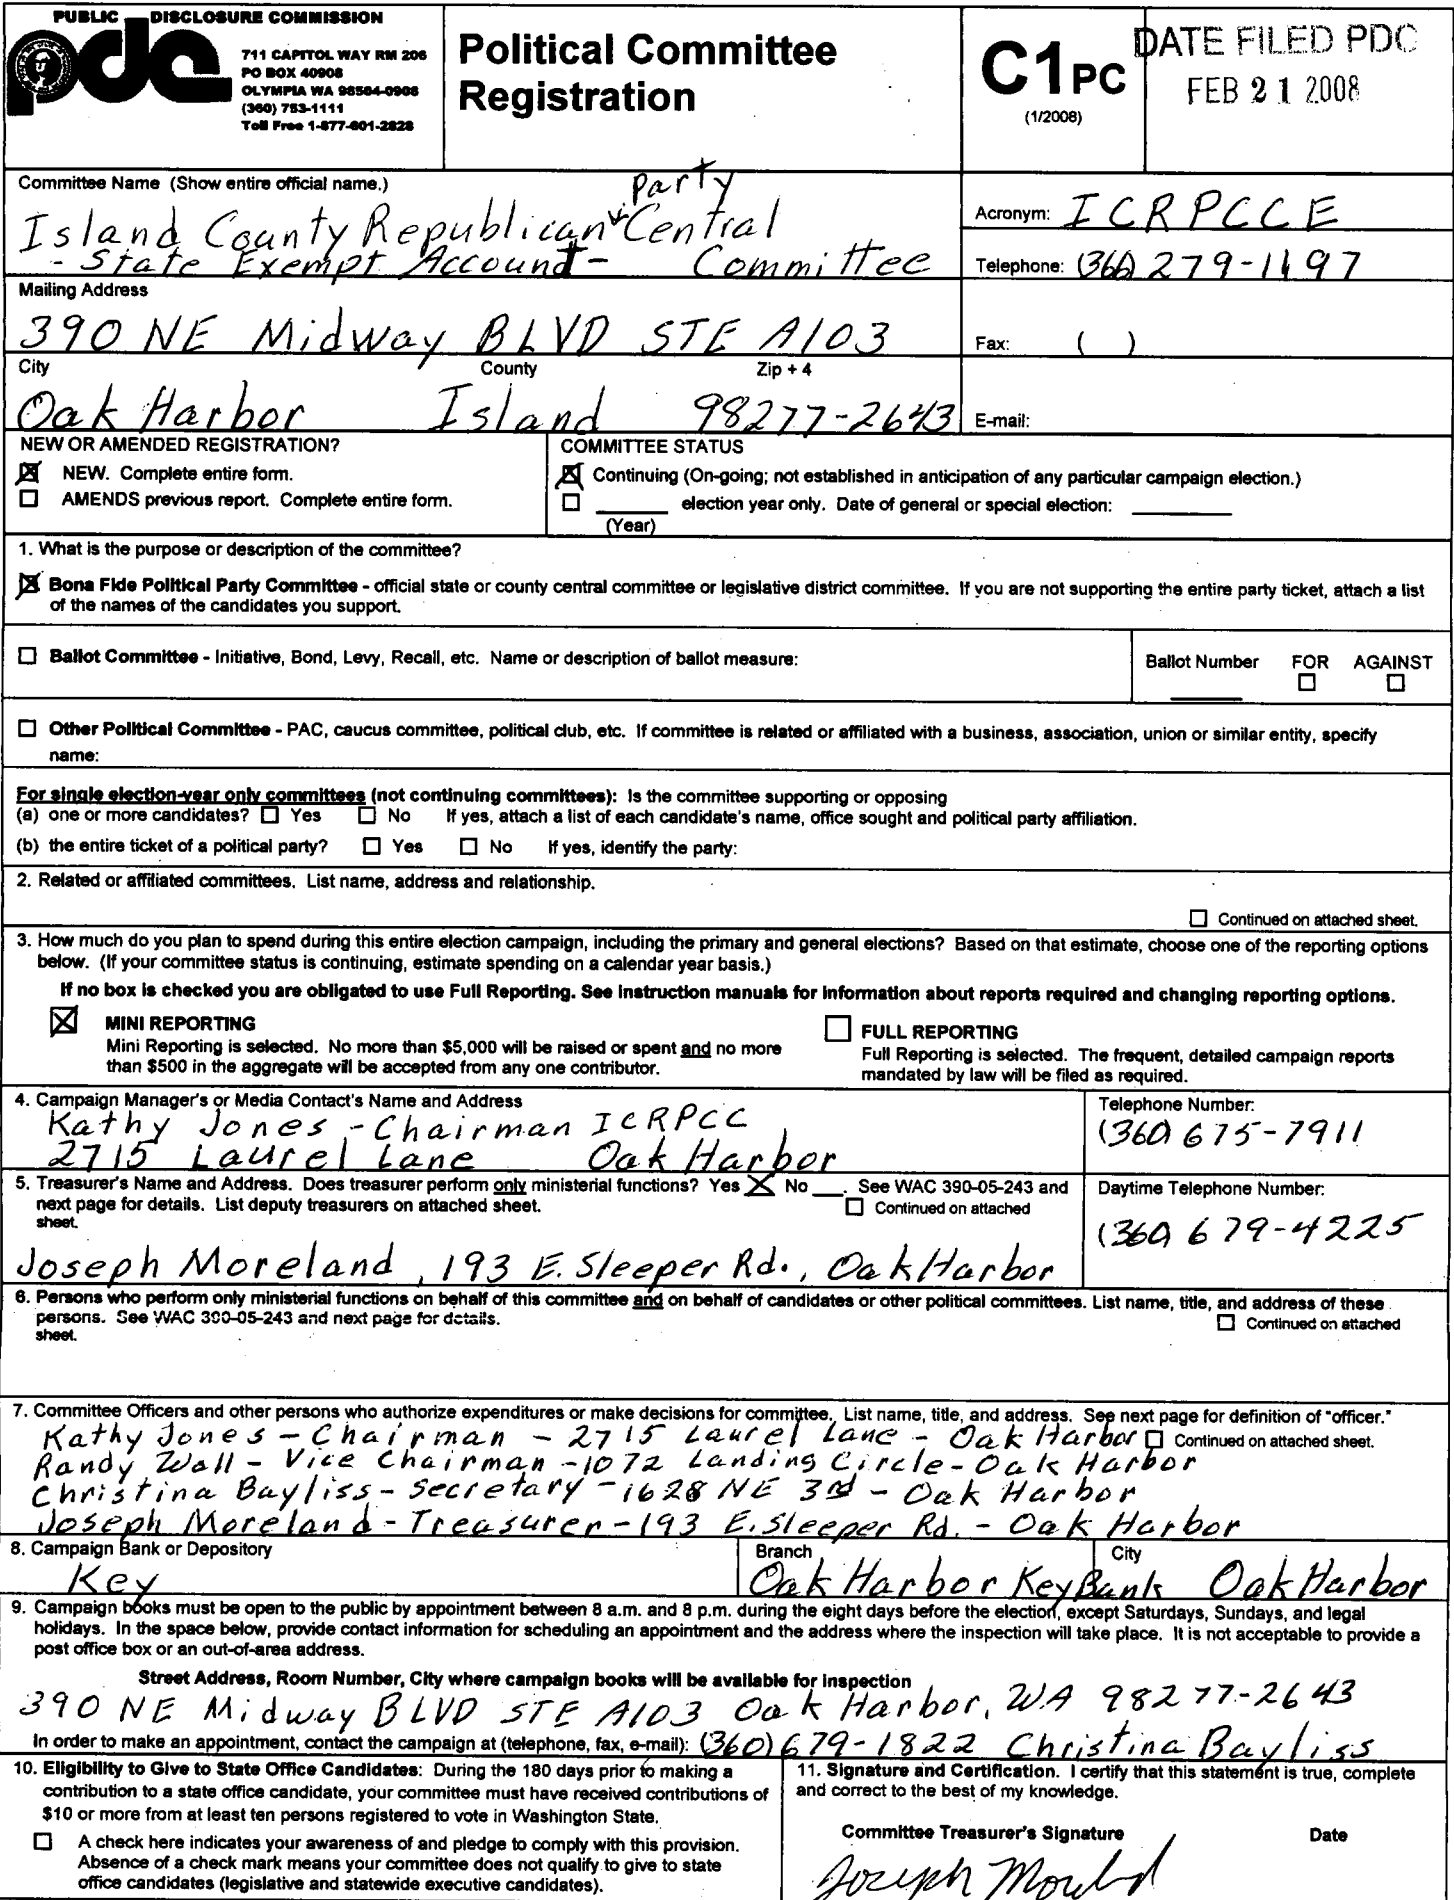 PUBLIC DISCLOSURE COMMISSION
pdc
711 CAPITOL WAY RM 206
PO BOX 40908
OLYMPIA WA 98504-0908
(360) 753-1111
Toll Free 1-877-601-2828
Political Committee
Registration
C1PC
(1/2008)
DATE FILED PDC
FEB 21 2008
Committee Name (Show entire official name.)
Party
Island County Republican Central
- State Exempt Account - Committee
Acronym: ICRPCCE
Telephone: (360) 279-1197
Mailing Address
390 NE Midway BLVD STE A103
Fax: ( )
City County Zip + 4
Oak Harbor Island 98277-2643
E-mail:
NEW OR AMENDED REGISTRATION?
NEW. Complete entire form.
AMENDS previous report. Complete entire form.
COMMITTEE STATUS
Continuing (On-going; not established in anticipation of any particular campaign election.)
______ election year only. Date of general or special election: ______
(Year)
1. What is the purpose or description of the committee?
Bona Fide Political Party Committee - official state or county central committee or legislative district committee. If you are not supporting the entire party ticket, attach a list
of the names of the candidates you support.
Ballot Committee - Initiative, Bond, Levy, Recall, etc. Name or description of ballot measure:
Ballot Number FOR AGAINST
Other Political Committee - PAC, caucus committee, political club, etc. If committee is related or affiliated with a business, association, union or similar entity, specify
name:
For single election-year only committees (not continuing committees): Is the committee supporting or opposing
(a) one or more candidates? Yes No If yes, attach a list of each candidate's name, office sought and political party affiliation.
(b) the entire ticket of a political party? Yes No If yes, identify the party:
2. Related or affiliated committees. List name, address and relationship.
Continued on attached sheet.
3. How much do you plan to spend during this entire election campaign, including the primary and general elections? Based on that estimate, choose one of the reporting options
below. (If your committee status is continuing, estimate spending on a calendar year basis.)
If no box is checked you are obligated to use Full Reporting. See instruction manuals for information about reports required and changing reporting options.
MINI REPORTING
Mini Reporting is selected. No more than $5,000 will be raised or spent and no more
than $500 in the aggregate will be accepted from any one contributor.
FULL REPORTING
Full Reporting is selected. The frequent, detailed campaign reports
mandated by law will be filed as required.
4. Campaign Manager's or Media Contact's Name and Address
Kathy Jones - Chairman ICRPCC
2715 Laurel Lane Oak Harbor
Telephone Number:
(360) 675-7911
5. Treasurer's Name and Address. Does treasurer perform only ministerial functions? Yes X No ___. See WAC 390-05-243 and
next page for details. List deputy treasurers on attached sheet. Continued on attached
sheet.
Joseph Moreland, 193 E. Sleeper Rd., Oak Harbor
Daytime Telephone Number:
(360) 679-4225
6. Persons who perform only ministerial functions on behalf of this committee and on behalf of candidates or other political committees. List name, title, and address of these
persons. See WAC 390-05-243 and next page for details. Continued on attached
sheet.
7. Committee Officers and other persons who authorize expenditures or make decisions for committee. List name, title, and address. See next page for definition of "officer."
Kathy Jones - Chairman - 2715 Laurel Lane - Oak Harbor Continued on attached sheet.
Randy Wall - Vice Chairman - 1072 Landing Circle - Oak Harbor
Christina Bayliss - Secretary - 1628 NE 3rd - Oak Harbor
Joseph Moreland - Treasurer - 193 E. Sleeper Rd. - Oak Harbor
8. Campaign Bank or Depository Branch City
Key Oak Harbor KeyBank Oak Harbor
9. Campaign books must be open to the public by appointment between 8 a.m. and 8 p.m. during the eight days before the election, except Saturdays, Sundays, and legal
holidays. In the space below, provide contact information for scheduling an appointment and the address where the inspection will take place. It is not acceptable to provide a
post office box or an out-of-area address.
Street Address, Room Number, City where campaign books will be available for inspection
390 NE Midway BLVD STE A103 Oak Harbor, WA 98277-2643
In order to make an appointment, contact the campaign at (telephone, fax, e-mail): (360) 679-1822 Christina Bayliss
10. Eligibility to Give to State Office Candidates: During the 180 days prior to making a
contribution to a state office candidate, your committee must have received contributions of
$10 or more from at least ten persons registered to vote in Washington State.
A check here indicates your awareness of and pledge to comply with this provision.
Absence of a check mark means your committee does not qualify to give to state
office candidates (legislative and statewide executive candidates).
11. Signature and Certification. I certify that this statement is true, complete
and correct to the best of my knowledge.
Committee Treasurer's Signature Date
Joseph Moreland